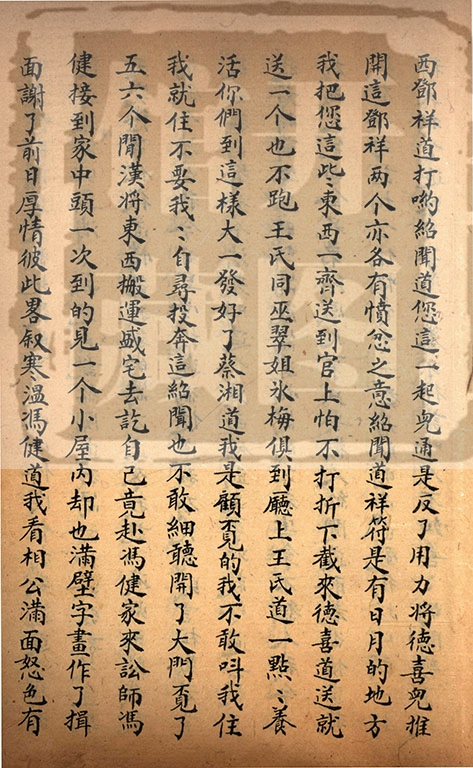 西鄧祥道打喲紹聞道您這一起兜通是反了用力將德喜兜推
開這鄧祥两个亦各有憤忿之意紹聞道祥符是有日月的地方
我把您這些〻東西一齊送到官上怕不打折下截來德喜道送就
送一个也不跑王氏同巫翠姐氷梅俱到廳上王氏道一點〻養
活你們到這樣大一發好了蔡湘道我是顧覔的我不敢呌我住
我就住不要我〻自尋投奔這紹聞也不敢細聽開了大門覔了
五六个閒漢將東西搬運盛宅去訖自己竟赴馮健家來訟師馮
健接到家中頭一次到的見一个小屋内却也滿壁字畫作了揖
面謝了前日厚情彼此畧叙寒温馮健道我看相公滿面怒色有